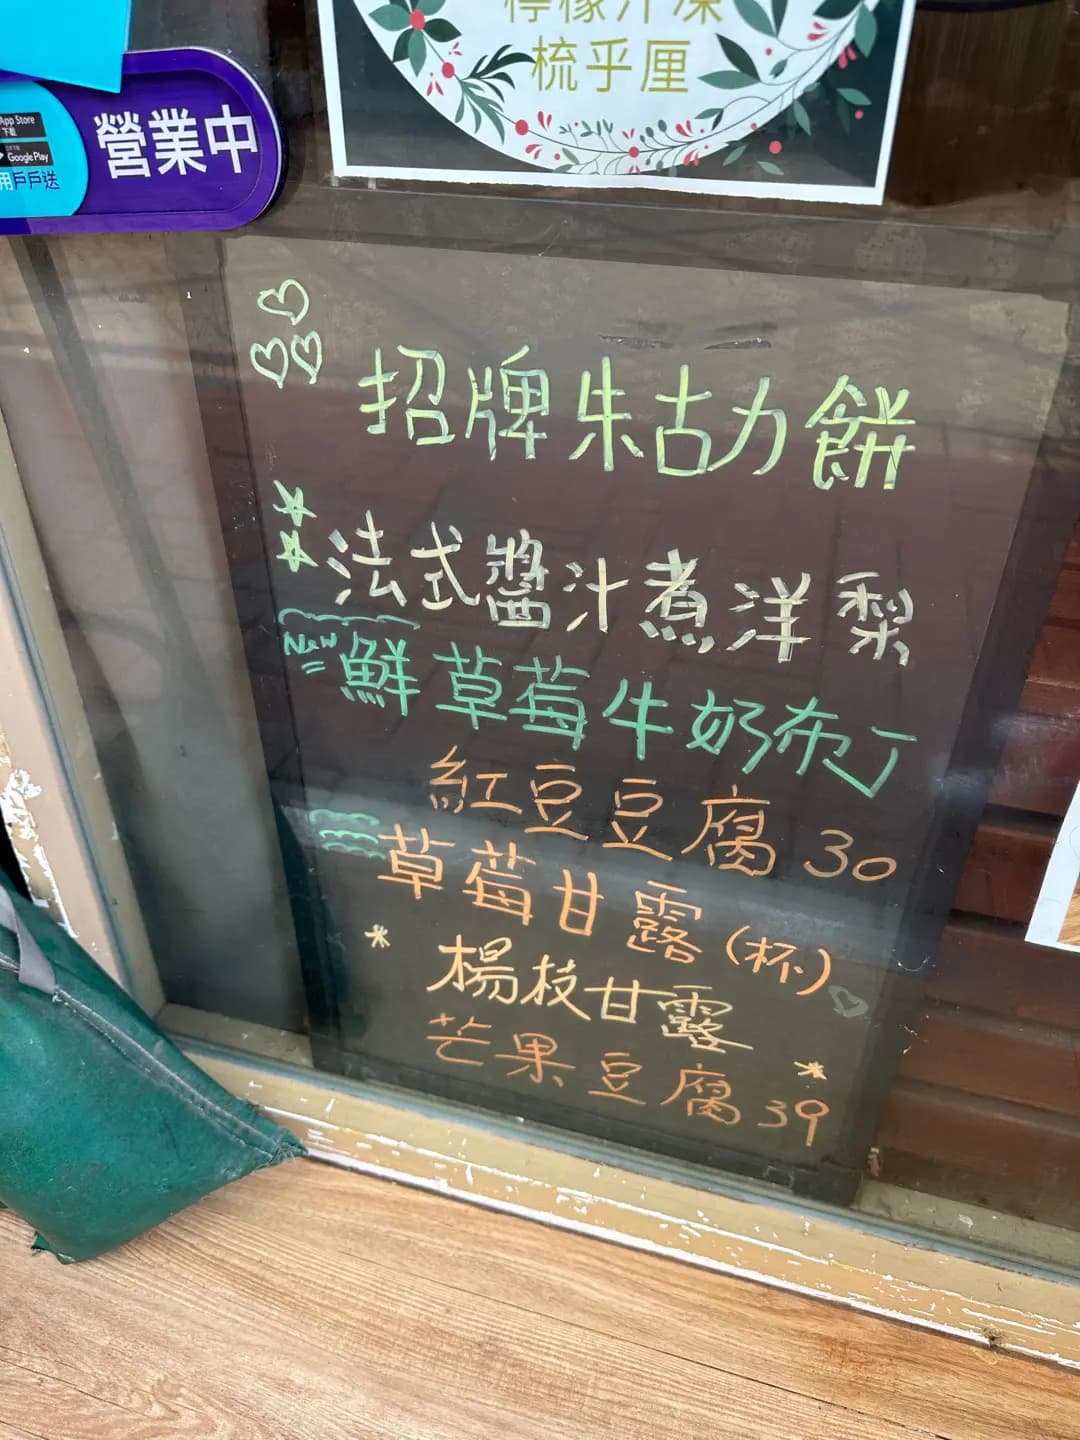 檸檬汁凍
梳乎厘
App Store
下載
Google Play
用戶戶送
營業中
招牌朱古力餅
法式醬汁煮洋梨
New 鮮草莓牛奶布丁
紅豆豆腐 30
草莓甘露(杯)
楊枝甘露
芒果豆腐 39